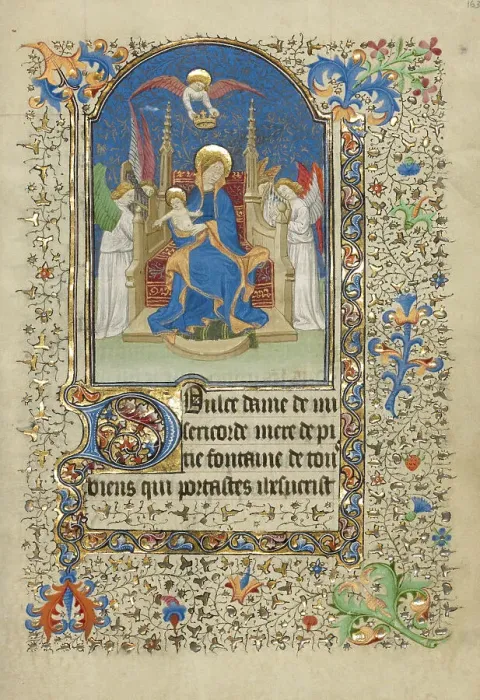 163
DOulce dame de mi
sericorde mere de pi
tie fontaine de tou
biens qui portastes ihesucrist